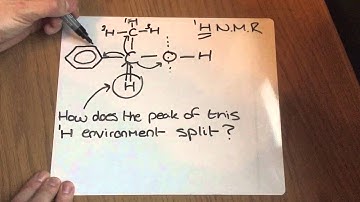 ¹H
¹H N.M.R
²H-C-³H
C-O-H
H
How does the peak of this
¹H environment split?